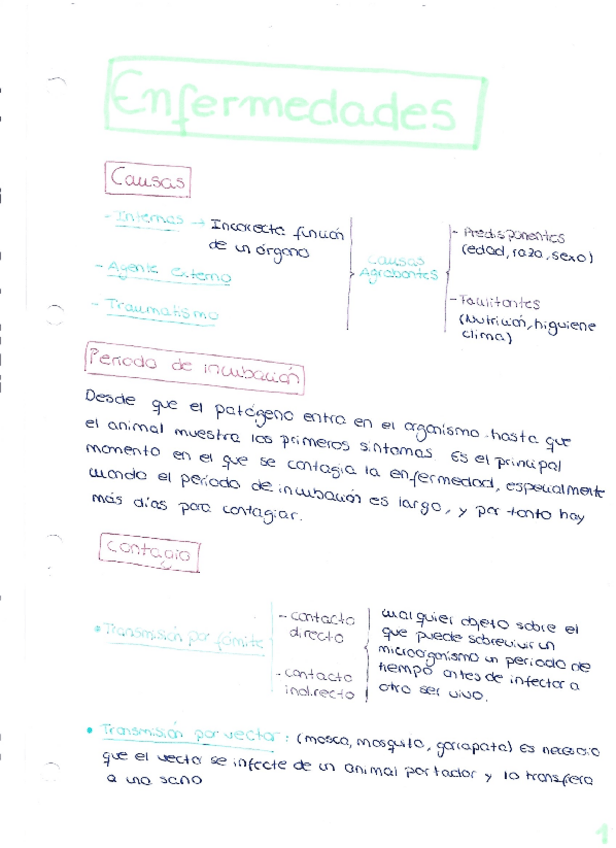 Enfermedades
Causas
- Internas → Incorrecta función
de un órgano
- Agente externo
- Traumatismo
Causas
Agrabantes
- Predisponentes
(edad, raza, sexo)
- Facilitantes
(Nutrición, higuiene
clima)
Período de incubación
Desde que el patógeno entra en el organismo hasta que
el animal muestra los primeros síntomas. Es el principal
momento en el que se contagia la enfermedad, especialmente
cuando el período de incubación es largo, y por tanto hay
más días para contagiar.
Contagio
• Transmisión por fómite
- contacto
directo
- contacto
indirecto
cualquier objeto sobre el
que puede sobrevivir un
microorganismo un periodo de
tiempo antes de infectar a
otro ser vivo.
• Transmisión por vector: (mosca, mosquito, garrapata) Es necesario
que el vector se infecte de un animal portador y lo transfera
a uno sano
1